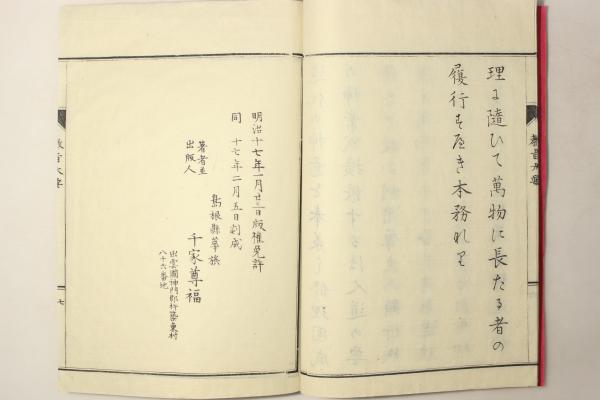 理に隨ひて萬物に長たる者の
履行すべき本務なり
明治十七年一月廿三日版權免許
同 十七年二月五日刻成
著者並
出版人
島根縣華族
千家尊福
出雲國神門郡杵築東村
八十六番地
七